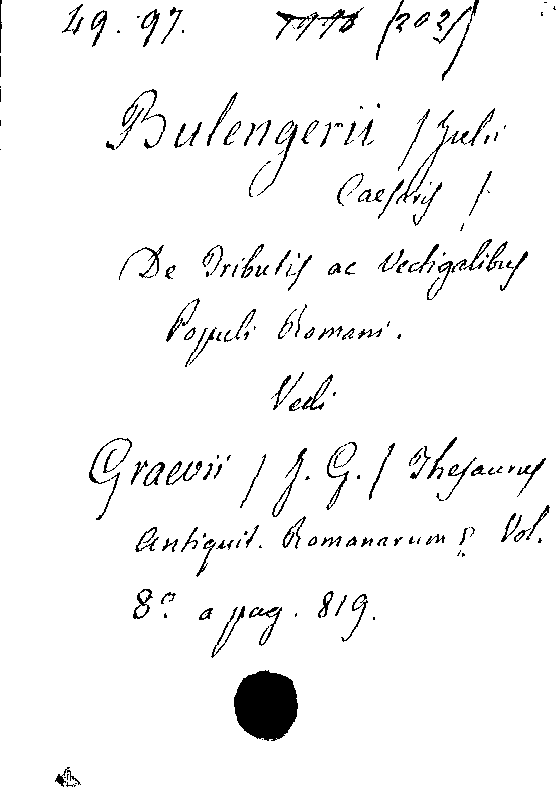 49. 97. 1996 /202/
Bulengerii / Julii
Caesaris /.
De Tributis ac Vectigalibus
Populi Romani.
Vedi
Graevii / J. G. / Thesaurus
Antiquit. Romanarum Vol.
8º a pag. 819.